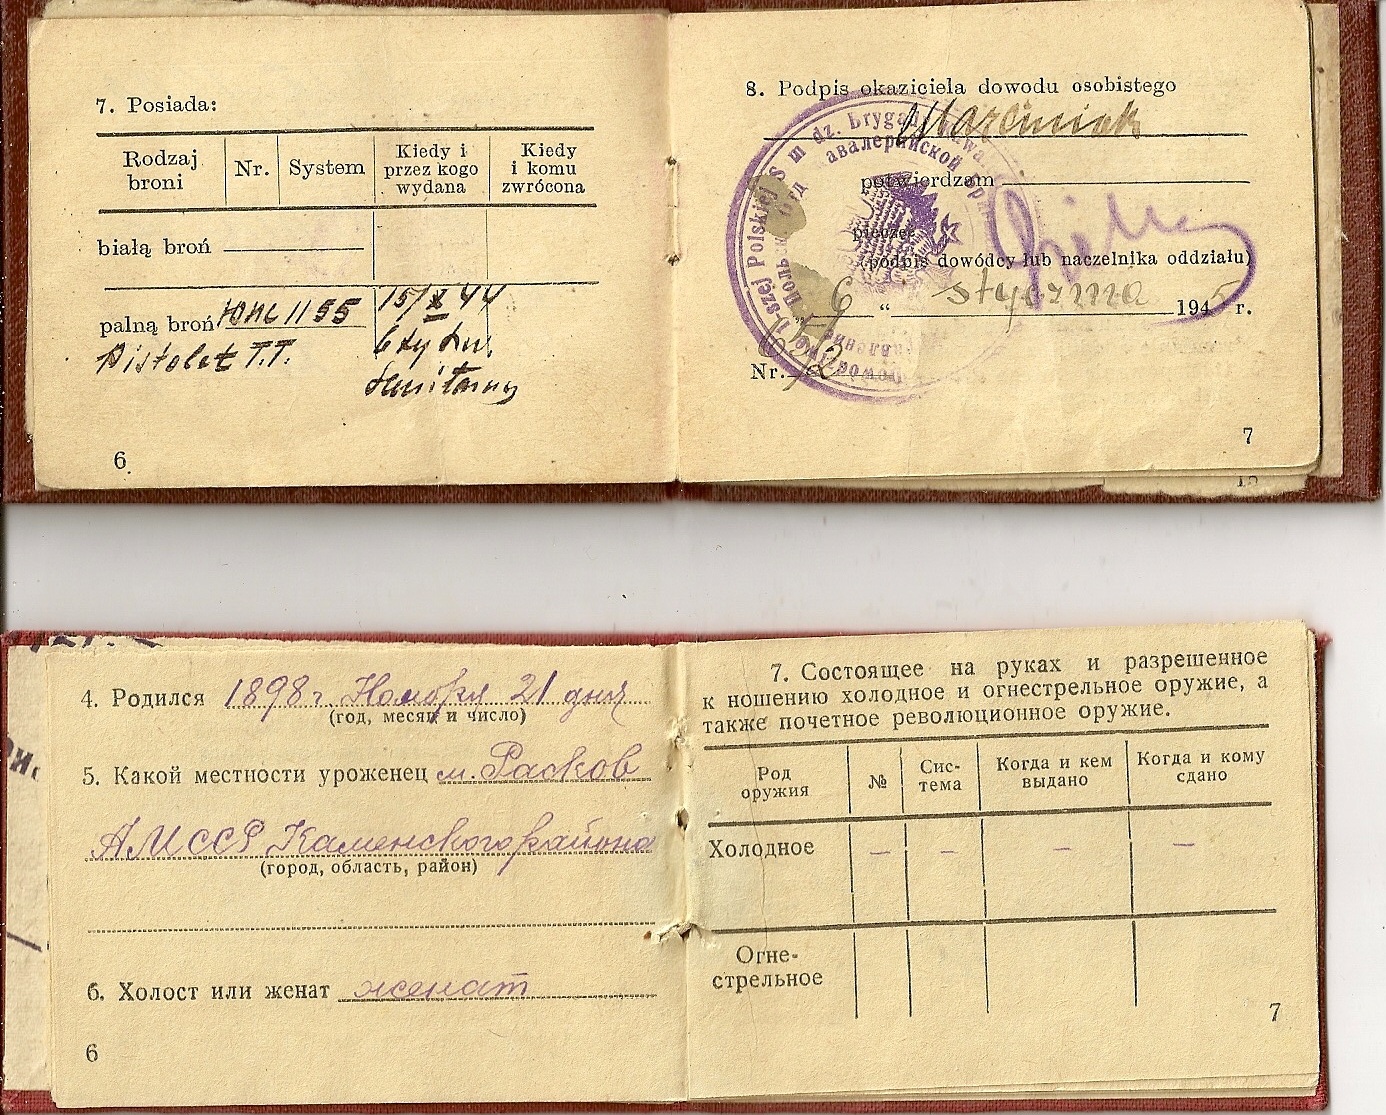 7. Posiada:
Rodzaj broni
Nr.
System
Kiedy i przez kogo wydana
Kiedy i komu zwrócona
białą broń
palną broń 1155
15/X 44
Pistolet T.T.
Sanitarny
6
8. Podpis okaziciela dowodu osobistego
Marciniak
potwierdzam
pieczęć
(podpis dowódcy lub naczelnika oddziału)
6 " stycznia 1945 r.
Nr.
7
4. Родился 1898 г. Ноября 21 дня
(год, месяц и число)
5. Какой местности уроженец м. Расков
АМССР Каменского района
(город, область, район)
6. Холост или женат женат
6
7. Состоящее на руках и разрешенное
к ношению холодное и огнестрельное оружие, а
также почетное революционное оружие.
Род оружия
№
Сис-
тема
Когда и кем выдано
Когда и кому сдано
Холодное — — — —
Огне-
стрельное
7